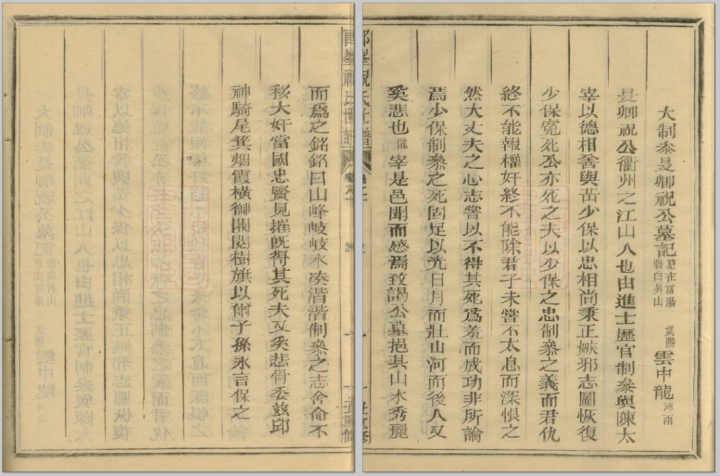 大制參旻卿祝公墓記 墓在富陽縣白與山 雲中龍
旻卿祝公衢州之江山人也由進士歷官制參與陳太
宰以德相善與岳少保以忠相尚秉正嫉邪志圖恢復
少保冤死公亦死之夫以少保之忠制參之義而君仇
終不能報權奸終不能除君子未嘗不太息而深恨之
然大丈夫之心志嘗以不得其死為羞而成功非所論
焉少保制參之死固足以光日月而壯山河而後人又
奚悲也龍宰是邑聞而感焉致謁公墓挹其山水秀麗
而為之銘銘曰山峰岐岐水湊潝潝制參之志舍侖不
移大奸當國忠賢見摧既得其死夫又奚悲骨委茲邱
神騎尾箕烟霞橫御閥閱樹旗以爾子孫永言保之
郎峯祝氏世譜